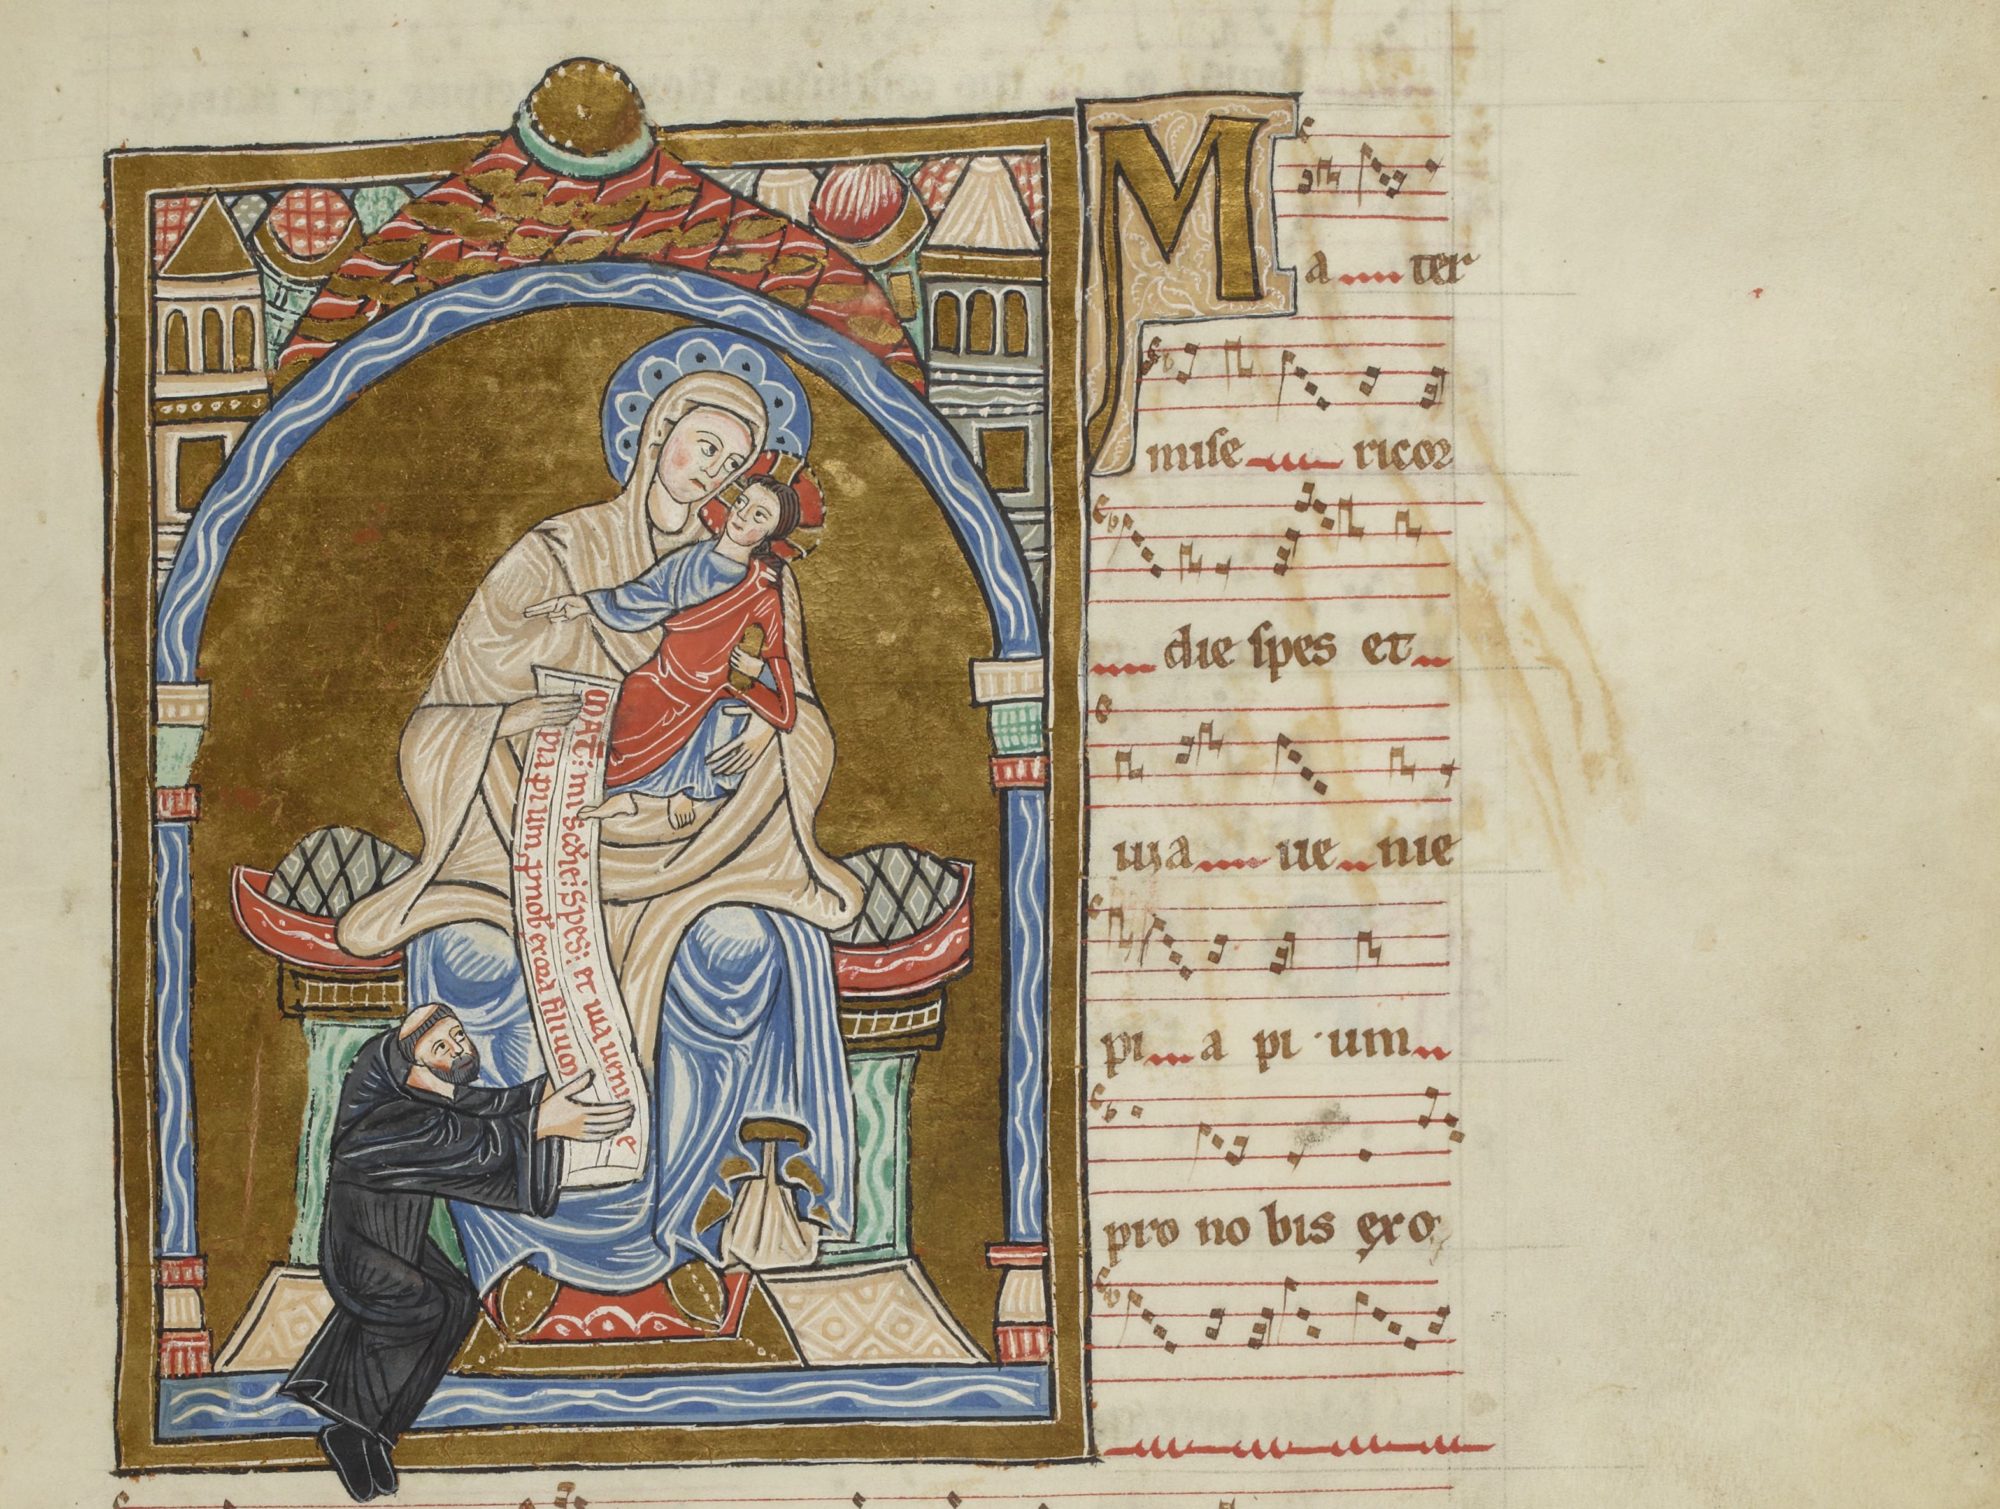 MAT: misc̄die: Spes: et uia uenie
pia pium p nob exora filium
Ma ter
mise ricor
die spes et
uia ue nie
pi a pi um
pro no bis exo